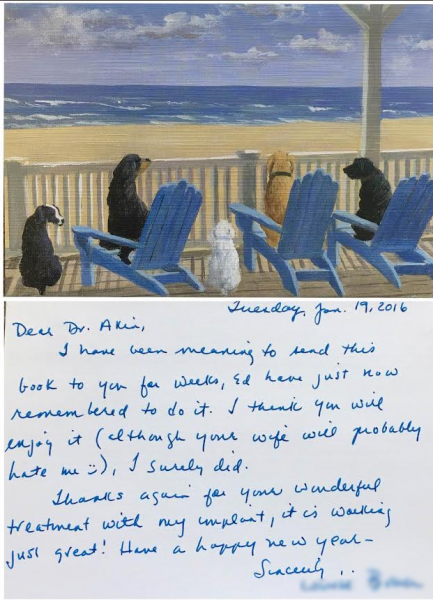 Tuesday, Jan. 19, 2016
Dear Dr. Akin,
I have been meaning to send this
book to you for weeks, & have just now
remembered to do it. I think you will
enjoy it (although your wife will probably
hate me :)), I surely did.
Thanks again for your wonderful
treatment with my implant, it is working
just great! Have a happy new year –
Sincerely,